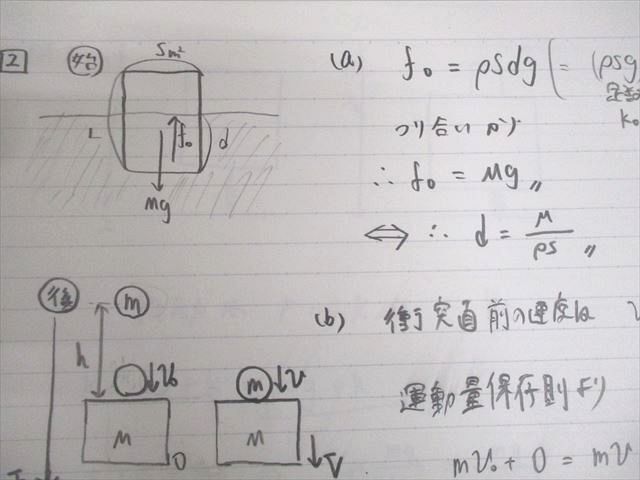 2
始
Sm²
L
f₀
d
Mg
(a) f₀ = ρSdg (= (ρSg
k₀
つり合いより
∴ f₀ = Mg〃
⇔ ∴ d = M/ρS 〃
後
m
h
v₀
M
0
m
v
M
V
(b) 衝突直前の速度は v
運動量保存則より
mv₀ + 0 = mv